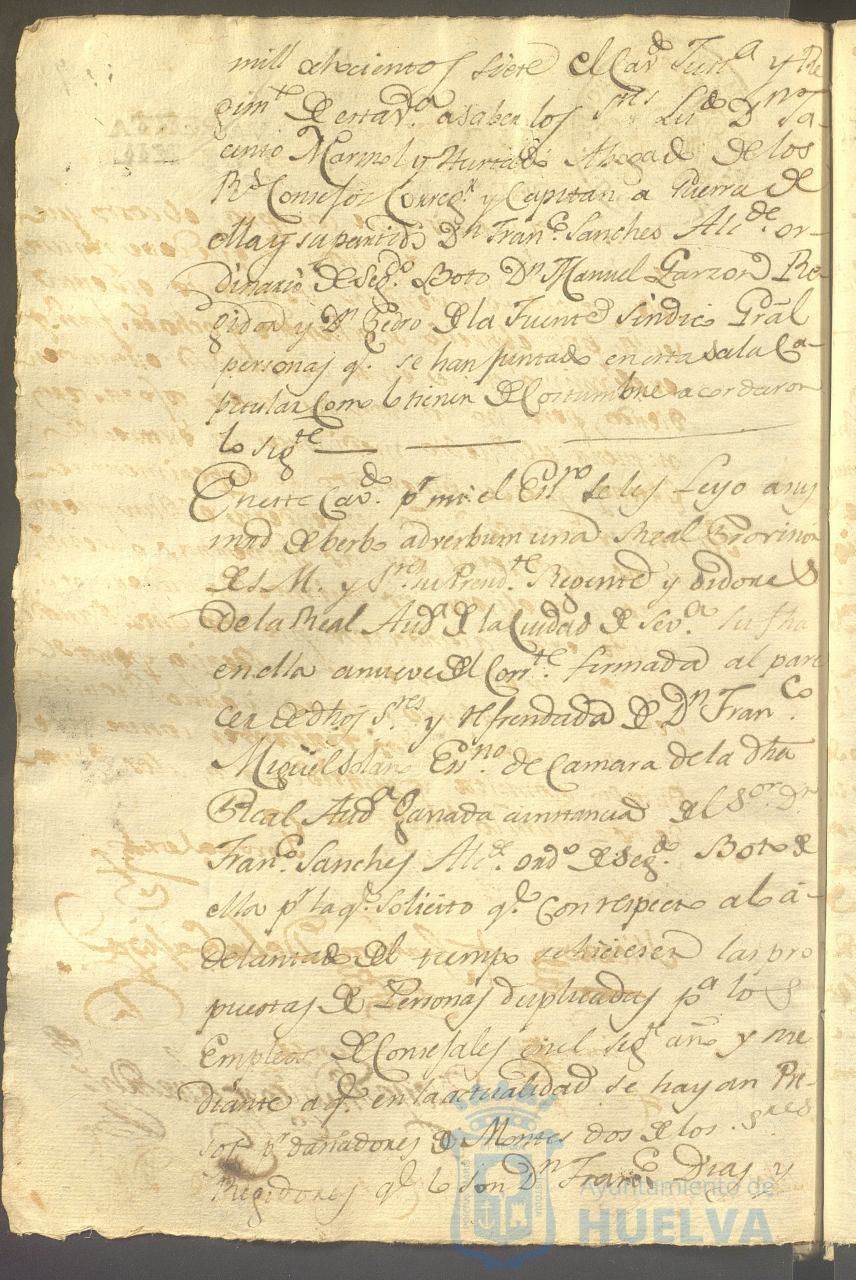 mill ochocientos siete el Cavᵈᵒ Justᵃ y Re
gimᵗᵒ de esta Vᵃ asaber los Sʳᵉˢ Liᵈᵒ Dⁿ Ja-
cinto Marmol y Hurtado Abogado de los
Rˢ Consejos Corregʳ y Capitan a Guerra de
ella y su partido Dⁿ Franᶜᵒ Sanches Alᶜᵈᵉ or-
dinario de Segᵒ Boto Dⁿ Manuel Garzon Re
gidor y Dⁿ Pedro de la Fuente Sindico Gral
personas qᵉ se han juntado en esta Sala Ca-
pitular como lo tienen de Costumbre acordaron
lo sigᵗᵉ
En este Cavᵈᵒ pʳ mi el Essⁿᵒ se les Leyo a sus
mrds de berbo adverbum una Real Provision
de S. M. y Sʳᵉˢ su Presidᵗᵉ Regente y Oidores
de la Real Audᵃ de la Ciudad de Sevᵃ su fha
en ella a nueve del Corrᵗᵉ firmada al pare
cer de dhos Sʳᵉˢ y refrendada de Dⁿ Franᶜᵒ
Miguel Solano Essⁿᵒ de Camara de la dha
Real Audᵃ ganada a instancia del Sᵒʳ Dⁿ
Franᶜᵒ Sanches Alᶜᵉ ordᵒ de Segᵈᵒ Boto de
ella pʳ la qᵉ solicito qᵉ con respecto a lo a-
delantado del tiempo se hiciesen las pro
puestas de Personas duplicadas pᵃ los
Empleos de Consejales en el sigᵗᵉ año y me
diante a qᵉ en la actualidad se hayan Pre-
sos pʳ dañadores de Montes dos de los Sʳᵉˢ
Regidores qᵉ lo son Dⁿ Franᶜᵒ Dias y
Ayuntamiento de
HUELVA